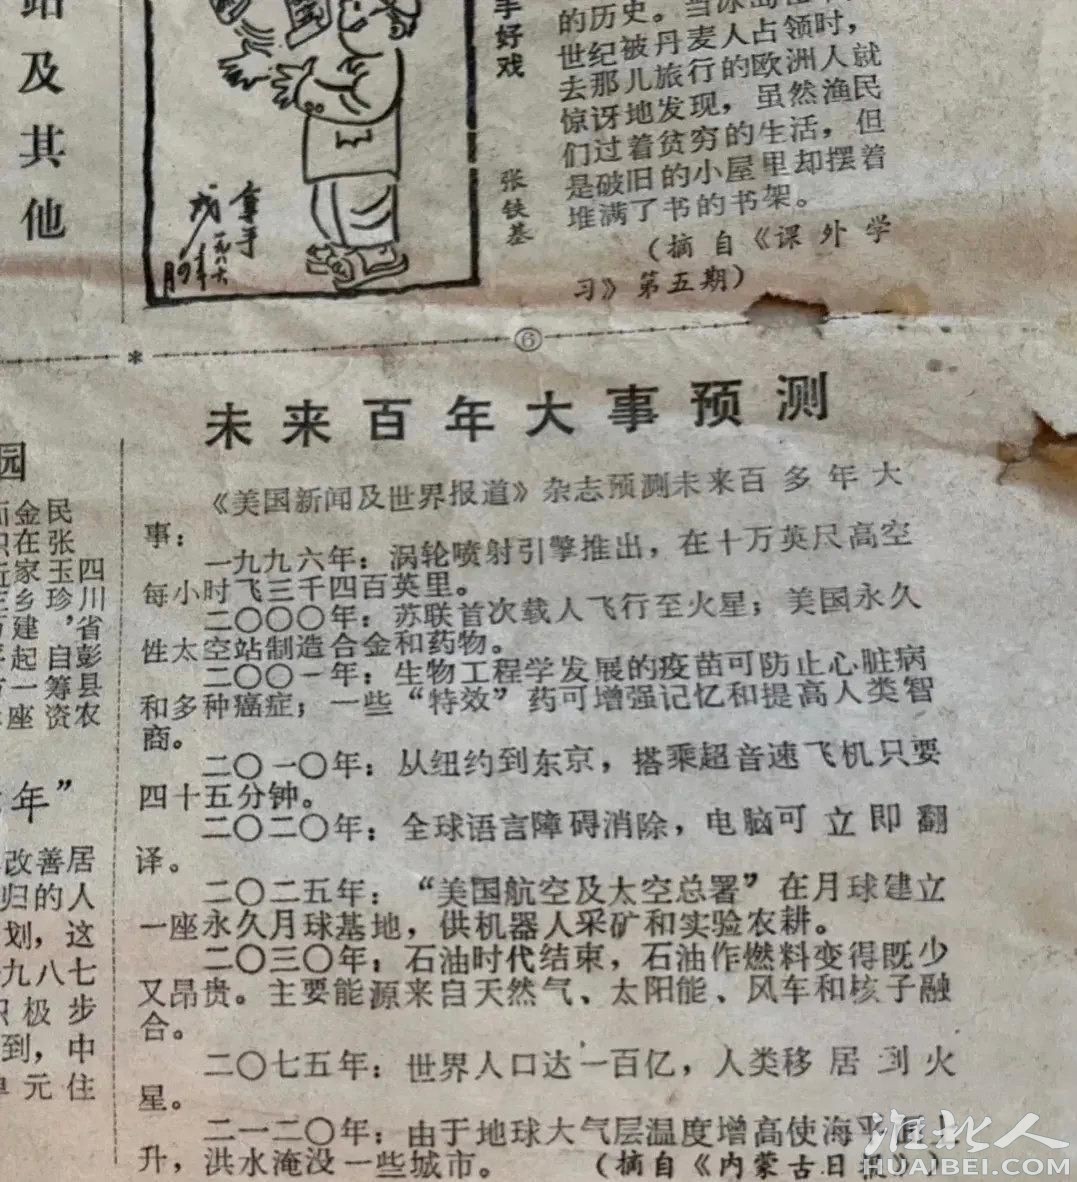 站及其他
拿手好戏
张铁基
拿手
戏
一九八六
的历史。当冰岛在
世纪被丹麦人占领时，
去那儿旅行的欧洲人就
惊讶地发现，虽然渔民
们过着贫穷的生活，但
是破旧的小屋里却摆着
堆满了书的书架。
（摘自《课外学
习》第五期）
⑥
园
四川省彭县农
民张玉珍，自筹资
金在家乡建起一座
年”
改善居
归的人
划，这
九八七
积极步
到，中
单元住
未来百年大事预测
《美国新闻及世界报道》杂志预测未来百多年大
事：
一九九六年：涡轮喷射引擎推出，在十万英尺高空
每小时飞三千四百英里。
二〇〇〇年：苏联首次载人飞行至火星；美国永久
性太空站制造合金和药物。
二〇〇一年：生物工程学发展的疫苗可防止心脏病
和多种癌症；一些“特效”药可增强记忆和提高人类智
商。
二〇一〇年：从纽约到东京，搭乘超音速飞机只要
四十五分钟。
二〇二〇年：全球语言障碍消除，电脑可立即翻
译。
二〇二五年：“美国航空及太空总署”在月球建立
一座永久月球基地，供机器人采矿和实验农耕。
二〇三〇年：石油时代结束，石油作燃料变得既少
又昂贵。主要能源来自天然气、太阳能、风车和核子融
合。
二〇七五年：世界人口达一百亿，人类移居到火
星。
二一二〇年：由于地球大气层温度增高使海平面上
升，洪水淹没一些城市。（摘自《内蒙古日报》）
淮北人
HUAIBEI.COM